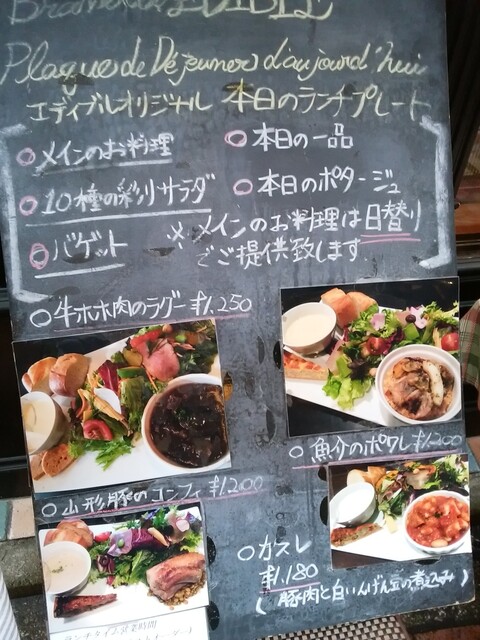 Plaque de Déjeuner d'aujourd'hui
エディブルオリジナル 本日のランチプレート
○メインのお料理
○10種の彩りサラダ
○バゲット
○本日の一品
○本日のポタージュ
※メインのお料理は日替り
でご提供致します
○牛ホホ肉のラグー ¥1,250
○魚介のポワレ ¥1,200
○山形豚のコンフィ ¥1,200
○カスレ
¥1,180
(豚肉と白いんげん豆の煮込み)